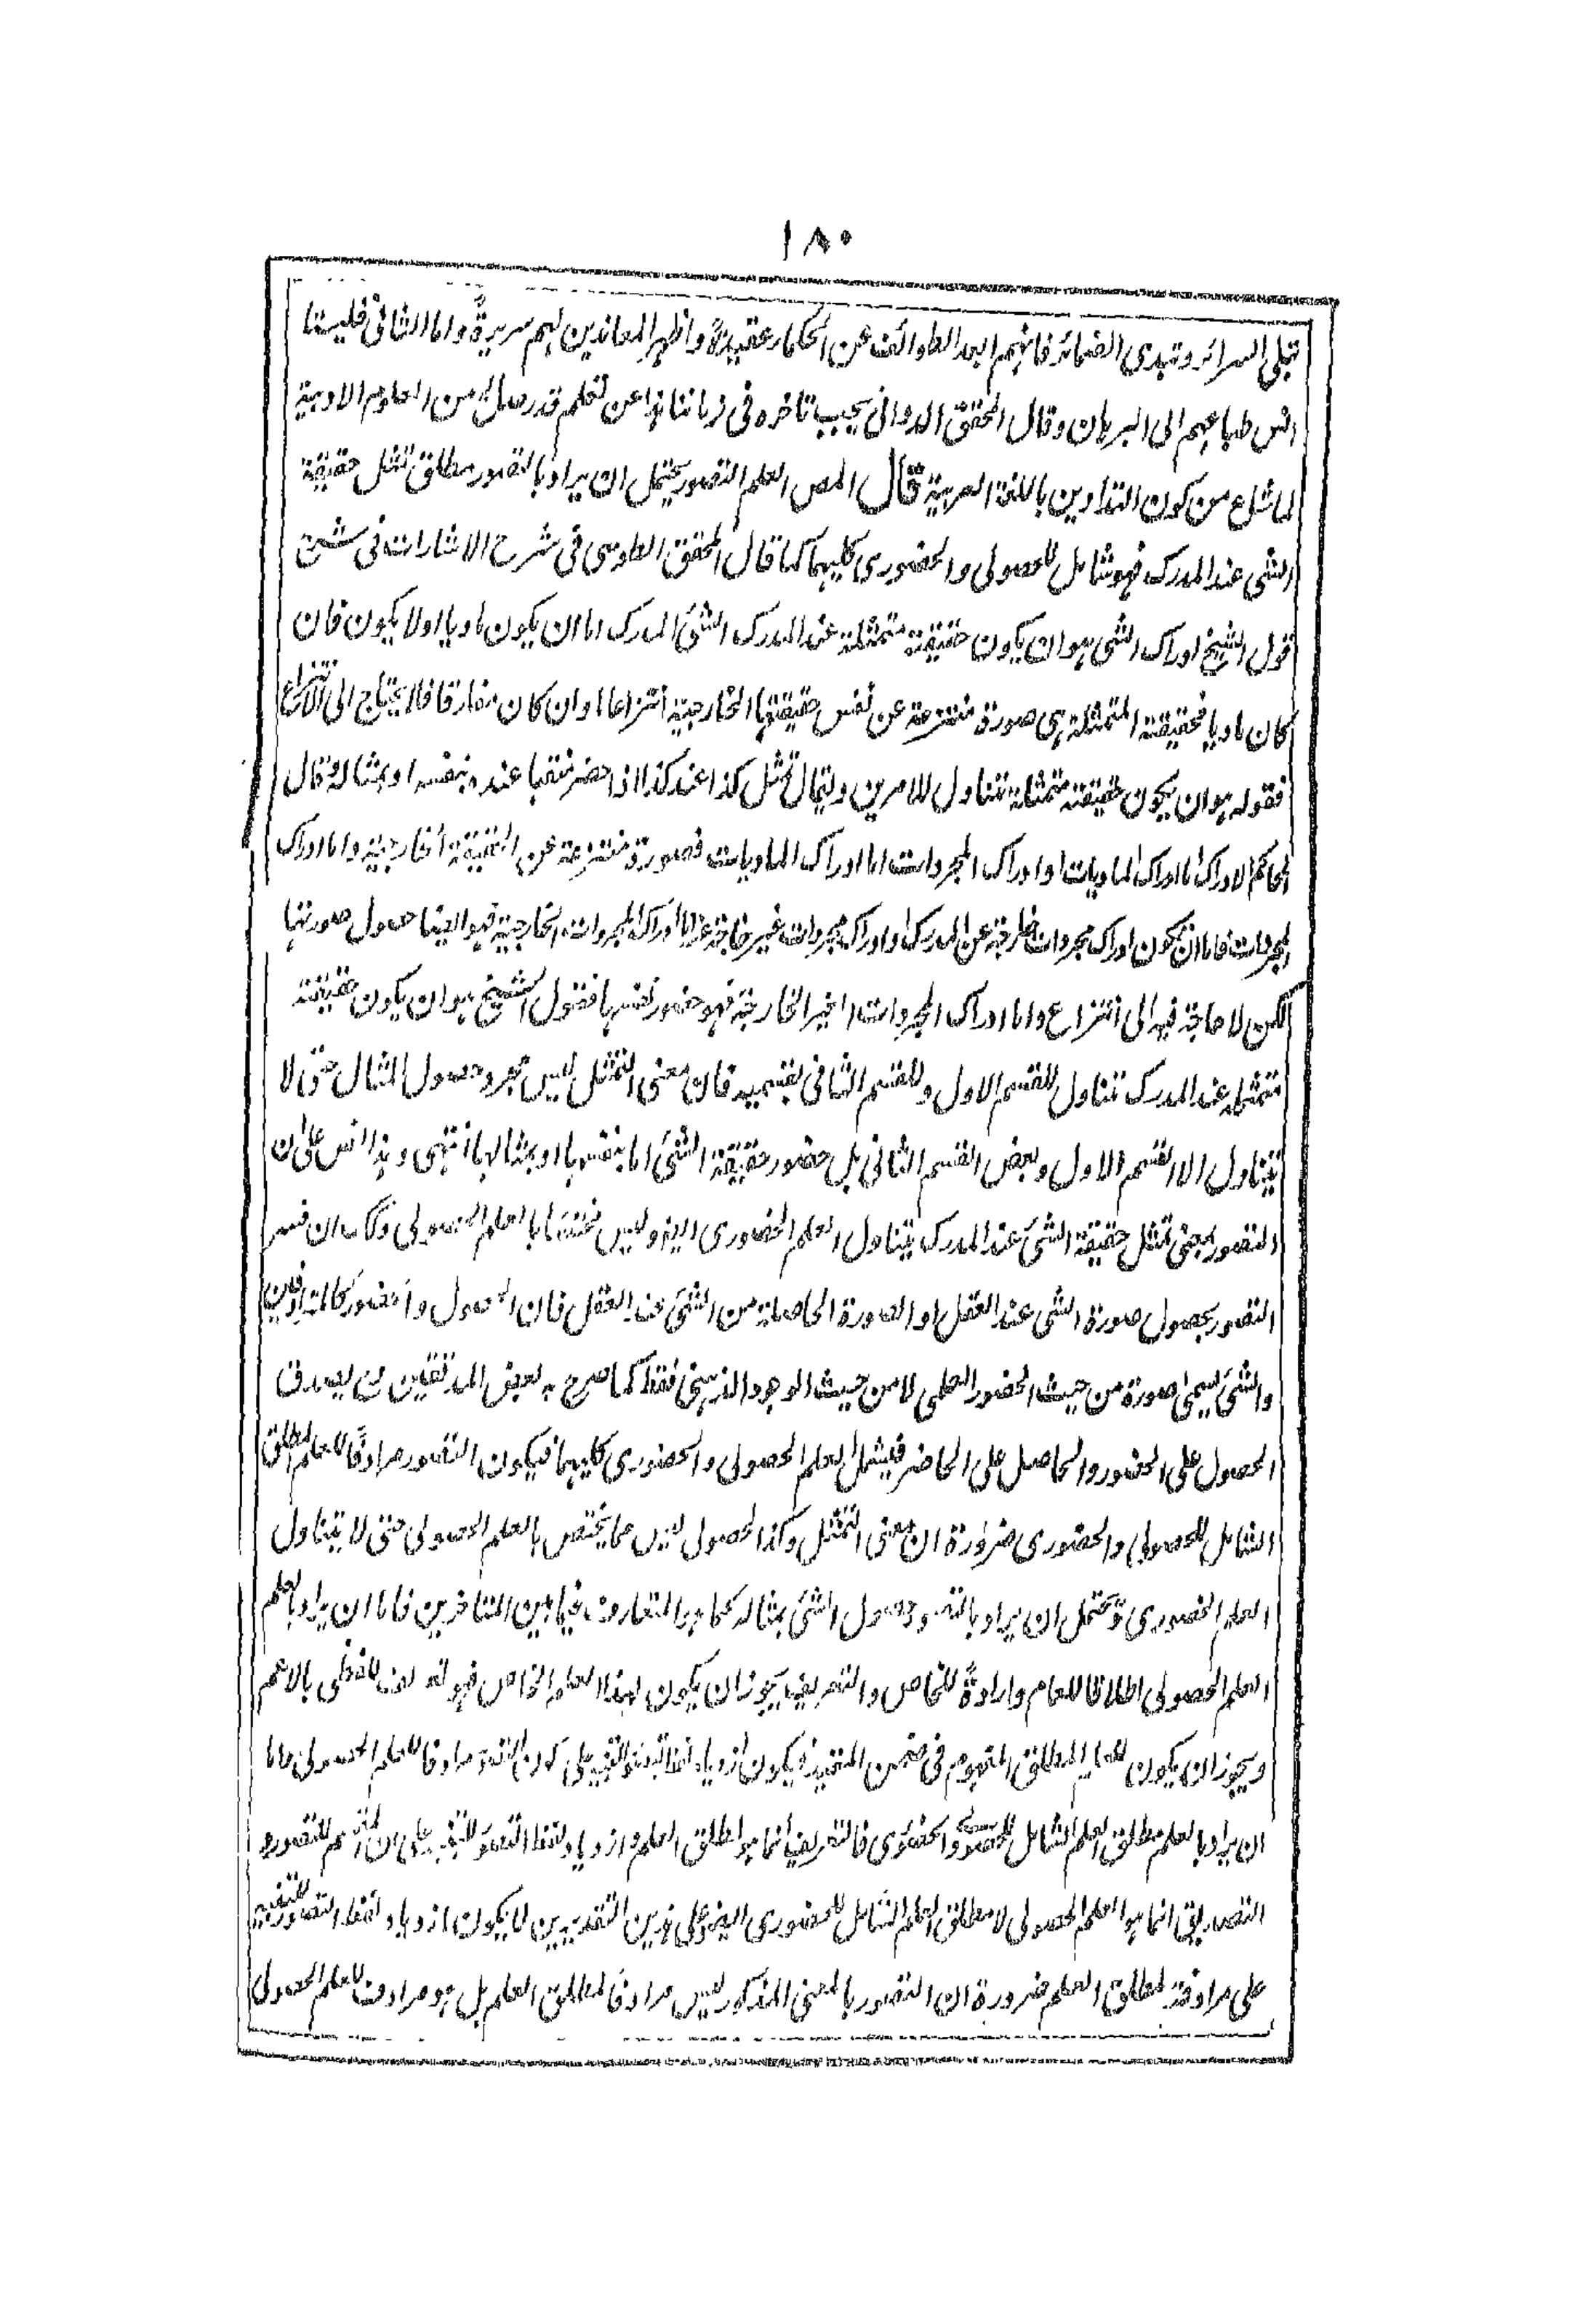 ١٨٠
تبلى السرائر وتبدى الضمائر فانهم ابعد الطوائف عن الحكماء عقيدةً واظهر المعاندين لهم سريرةً واما الثانى فليستا
نس طباعهم الى البرهان وقال المحقق الدوانى يجب تاخره فى زماننا هذا عن تعلم قدر صالح من العلوم الادبية
لما شاع من كون التداوين باللغة العربية قال المص العلم التصور يحتمل ان يراد بالتصور مطلق تمثل حقيقة
الشى عند المدرك فهو شامل للحصولى والحضورى كليهما كما قال المحقق الطوسى فى شرح الاشارات فى شرح
قول الشيخ ادراك الشى هو ان يكون حقيقته متمثلة عند المدرك الشئ المدرك اما ان يكون ماديا اولا يكون فان
كان ماديا فحقيقته المتمثلة هى صورة منتزعة عن نفس حقيقتها الخارجية انتزاعا وان كان مفارقا فلا يحتاج الى الانتزاع
فقوله هو ان يكون حقيقته متمثلة تتناول للامرين ويقال تمثل كذا عند كذا اذا حضر منتصبا عنده بنفسه او بمثاله وقال
المحاكم الادراك اما ادراك الماديات او ادراك المجردات اما ادراك الماديات فصورة منتزعة عن الحقيقة الخارجية واما ادراك
المجردات فاما ان يكون ادراك مجردات خارجة عن المدرك او ادراك مجردات غير خارجة عنه اما ادراك المجردات الخارجية فهو ايضا حصول صورتها
لكن لا حاجة فيه الى انتزاع واما ادراك المجردات الغير الخارجة فهو حضور نفسها فقول الشيخ هو ان يكون حقيقته
متمثلة عند المدرك تتناول للقسم الاول وللقسم الثانى بقسميه فان معنى التمثل ليس مجرد حصول المثال حتى لا
يتناول الا القسم الاول وبعض القسم الثانى بل حضور حقيقة الشئ اما بنفسها او بمثالها انتهى وهذا نص على ان
التصور بمعنى تمثل حقيقة الشئ عند المدرك يتناول العلم الحضورى ايضا وليس مختصا بالعلم الحصولى وكذا ان فسر
التصور بحصول صورة الشى عند العقل او الصورة الحاصلة من الشئ عند العقل فان الحصول والحضور كالمترادفين
والشئ ليسمى صورة من حيث الحضور العلمى لا من حيث الوجود الذهنى فقط كما صرح به بعض المدققين يصدق
الحصول على الحضور والحاصل على الحاضر فيشمل العلم الحصولى والحضورى كليهما فيكون التصور مرادفًا للعلم المطلق
الشامل للحصولى والحضورى ضرورة ان معنى التمثل وكذا الحصول ليس مما يختص بالعلم الحصولى حتى لا يتناول
العلم الحضورى ويحتمل ان يراد بالتصور حصول الشئ بمثاله كما هو المتعارف فيما بين المتاخرين فاما ان يراد بالعلم
العلم الحصولى اطلاقا للعام وارادةً للخاص والتعريف يجوز ان يكون لهذا العلم الخاص فهو تعريف لفظى بالاعم
ويجوز ان يكون للعلم المطلق المفهوم فى ضمن المقيد فيكون ازدياد لفظ التصور للتنبيه على كون التصور مرادفا للعلم الحصولى واما
ان يراد بالعلم مطلق العلم الشامل للحصولى والحضورى فالتعريف انما هو لمطلق العلم وازدياد لفظ التصور للتنبيه على ان المنقسم للتصور و
التصديق انما هو العلم الحصولى لا مطلق العلم الشامل للحضورى ايضا وعلى هذين التقديرين لا يكون ازدياد لفظ التصور للتنبيه
على مرادفته لمطلق العلم ضرورة ان التصور بالمعنى المذكور ليس مرادفًا لمطلق العلم بل هو مرادف للعلم الحصولى